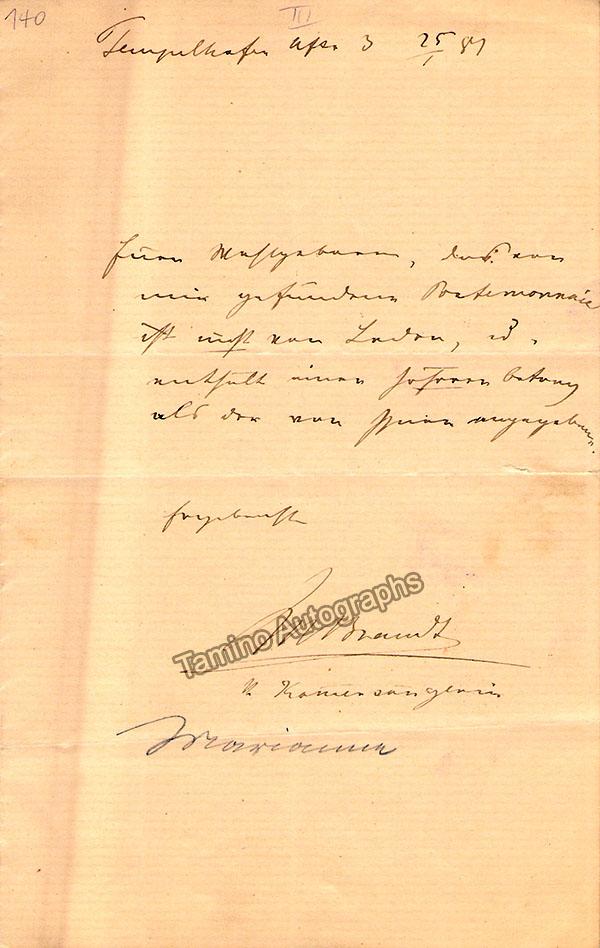 140
III
Tempelhofer Ufer 3 25/1 81
Euer Wohlgeboren, das von
mir gefundene Portemonnaie
ist nicht von Leder, u.
enthält einen höheren betrag
als der von Ihnen angegebene.
Ergebenst
Brandt
K. Kammersängerin
Marianne
Tamino Autographs